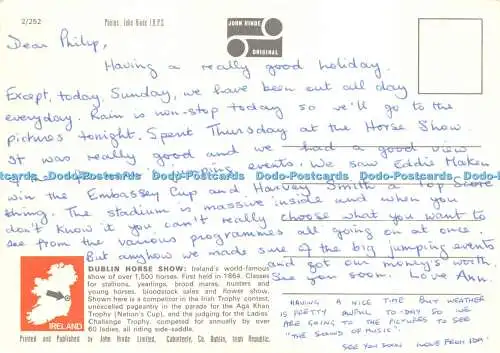 2/252
Photos: John Hinde F.R.P.S.
JOHN HINDE
ORIGINAL
Dear Philip,
Having a really good holiday.
Except, today, Sunday, we have been out all day
everyday. Rain is non-stop today so we'll go to the
pictures tonight. Spent Thursday at the Horse Show.
It was really good and we had a good view
jumping events. We saw Eddie Maken
Dodo-Postcards Dodo-Postcards Dodo-Postcards Dodo-Postcards Dodo-Postcards Dodo-Postcards
win the Embassey Cup and Harvey Smith a Top Score
thing. The stadium is massive inside and when you
don't know it you can't really choose what you want to
see from the various programmes all going on at once.
But anyhow we made sure of the big jumping events
and got our money's worth.
See you soon. Love Ann.
IRELAND
DUBLIN HORSE SHOW: Ireland's world-famous
show of over 1,500 horses. First held in 1864. Classes
for stallions, yearlings, brood mares, hunters and
young horses, bloodstock sales and flower show.
Shown here is a competition in the Irish Trophy contest,
unexcelled pageantry in the parade for the Aga Khan
Trophy (Nation's Cup), and the judging for the Ladies'
Challenge Trophy, competed for annually by over
60 ladies, all riding side-saddle.
Printed and Published by John Hinde Limited, Cabinteely, Co. Dublin, Irish Republic.
HAVING A NICE TIME BUT WEATHER
IS PRETTY AWFUL TO-DAY SO WE
ARE GOING TO THE PICTURES TO SEE
"THE SOUND OF MUSIC".
SEE YOU SOON LOVE FROM IDA